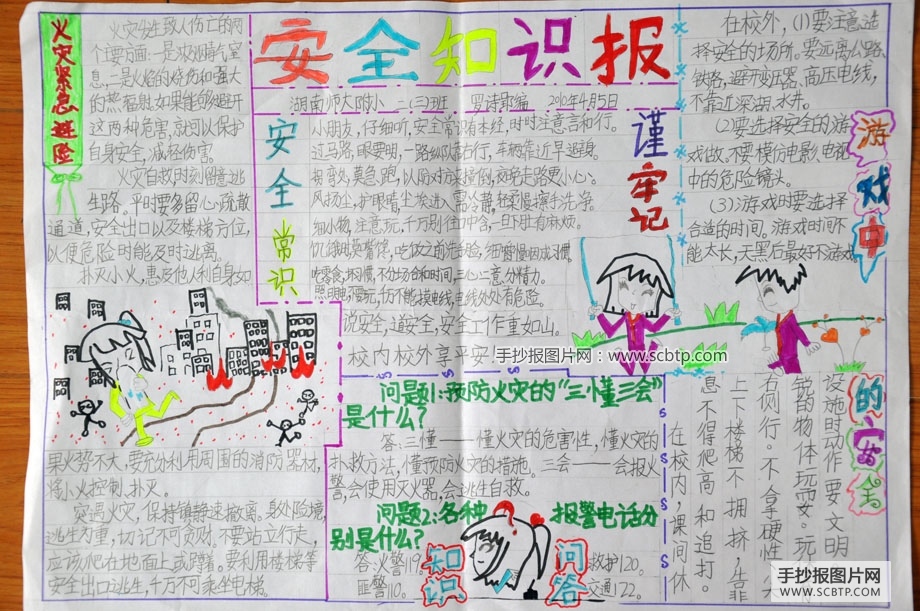 安全知识报
湖南师大附小 二(三)班 罗诗耶编 2010年4月5日
火灾紧急避险
火灾发生致人伤亡的两
个主要方面:一是浓烟毒气窒
息,二是火焰的烧伤和强大
的热辐射。如果能够避开
这两种危害,就可以保护
自身安全,减轻伤害。
火灾自救,时刻留意逃
生路。平时要多留心疏散
通道,安全出口以及楼梯方位,
以便危险时能及时逃离。
扑灭小火,惠及他人利自身如
果火势不大,要充分利用周围的消防器材,
将小火控制、扑灭。
突遇火灾,保持镇静速撤离。身处险境,
逃生为重,切记不可贪财,不要站立行走,
应该爬在地面上或蹲着。要利用楼梯等
安全出口逃生,千万不可乘坐电梯。
安全常识
小朋友,仔细听,安全常识有本经,时时注意言和行。
过马路,眼要明,一路纵队靠右行,车辆靠近早避身。
夜晚走路更小心。
饭前
吃饭之前洗脸,细嚼慢咽成习惯。
吃零食,
不怕场合和时间,三心二意分精力。
伤不能摸电线,电线处处有危险。
说安全,道安全,安全工作重如山。
校内校外享平安!
谨牢记
手抄报图片网:www.scbtp.com
问题1:预防火灾的“三懂三会”
是什么?
答:三懂——懂火灾的危害性,懂火灾的
扑救方法,懂预防火灾的措施。三会——会报火
警,会使用灭火器,会逃生自救。
问题2:各种报警电话分
别是什么?
答:火警119。
救护120。
匪警110。
交通122。
知识
问答
游戏中的安全
在校外,(1)要注意选
择安全的场所。要远离公路、
铁路,避开变压器、高压电线,
不靠近深湖、水井。
(2)要选择安全的游
戏做。不要模仿电影、电视
中的危险镜头。
(3)游戏时要选择
合适的时间。游戏时间不
能太长,天黑后最好不游戏。
在校内,课间休
息不得爬高和追打。
上下楼梯不拥挤,靠
右侧行。不拿硬性尖
锐的物体玩耍。玩
设施时动作要文明
手抄报图片网
SCBTP.COM